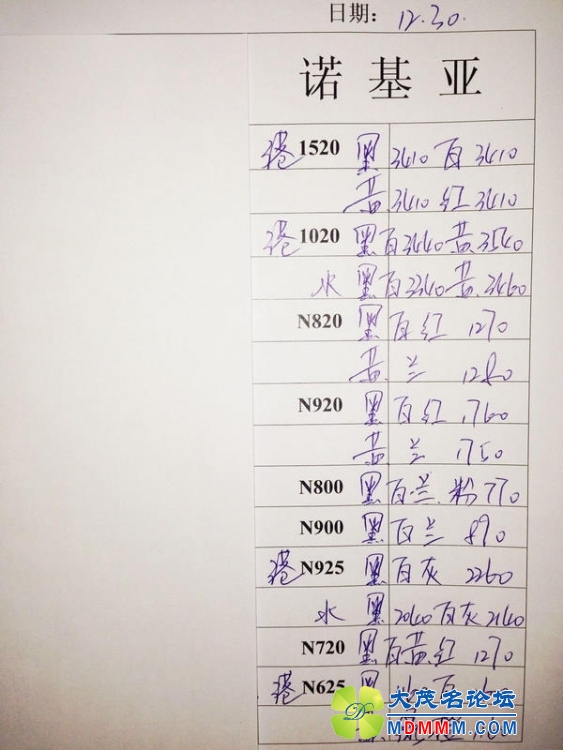 日期: 12.30.
诺基亚
港 1520 黑 3410 白 3410
黄 3410 红 3410
港 1020 黑白 3440 黄 3540
水 黑白 3340 黄 3460
N820 黑 白红 1270
黄 兰 1280
N920 黑 白红 1760
黄 兰 1750
N800 黑 白兰 粉 770
N900 黑 白兰 890
港 N925 黑 白灰 2260
水 黑 2040 白灰 2140
N720 黑白黄红 1270
港 N625 黑 白
大茂名论坛
MDMMM.COM